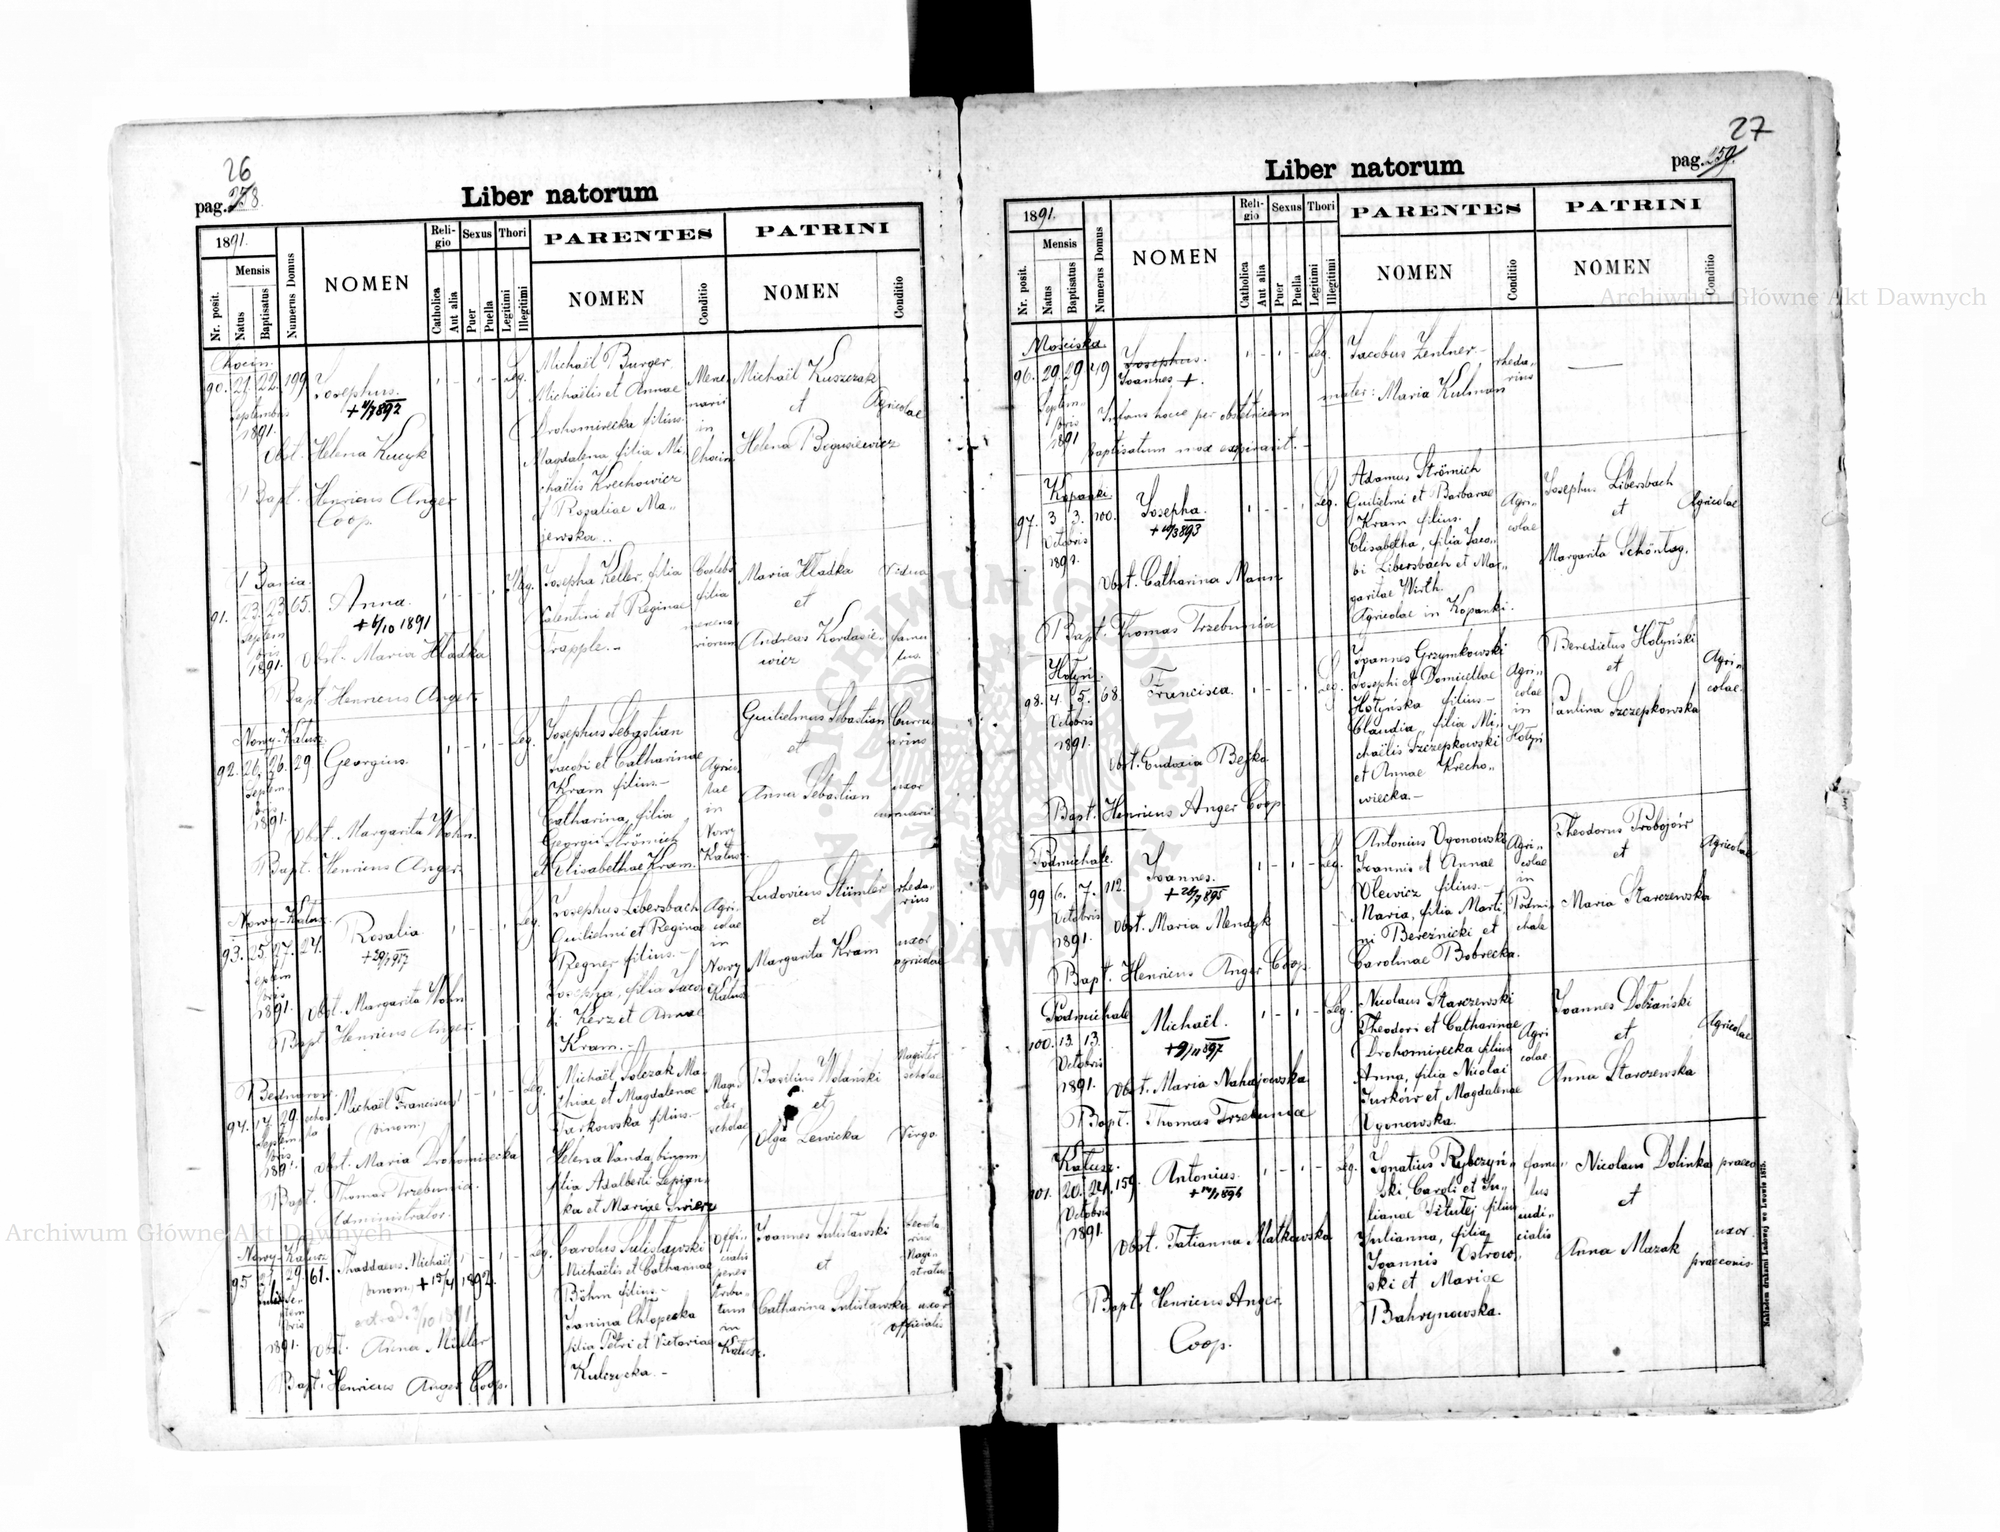 26
pag. 258.
Liber natorum
1891.
Mensis
Nr. posit.
Natus
Baptisatus
Numerus Domus
NOMEN
Religio
Catholica
Aut alia
Sexus
Puer
Puella
Thori
Legitimi
Illegitimi
PARENTES
NOMEN
Conditio
PATRINI
NOMEN
Conditio
Chocin.
90. 21. 22. 199
Septembris
1891.
Josephus.
Obst. Helena Kucyk
Bapt. Henricus Anger
Coop.
Leg.
Michaël Burger
Michaëlis et Annae
Drohomirecka filius.
Magdalena filia Mi-
chaëlis Krechowicz
et Rosaliae Ma-
jewska.
in
Chocin
Michaël Kuszczak
et
Helena Bogusiewicz
Agricolae
Bania.
91. 23. 23. 65.
Septem
bris
1891.
Anna.
+ 6/10 1891
Obst. Maria Hladka
Bapt. Henricus Anger.
Josepha Keller, filia
Valentini et Reginae
Trapple.-
filia
Maria Hladka
et
Andreas Kordasie-
wicz
Vidua
famu
lus.
Nowy-Kałusz
92. 26. 26. 29
Septem-
bris
1891.
Georgius.
Obst. Margarita Hohn.
Bapt. Henricus Anger.
Leg.
Josephus Sebastian
Jacobi et Catharinae
Kram filius.-
Catharina, filia
Georgii Strömich
et Elisabethae Kram.
Agrico
lae
in
Nowy
Kałusz.
Guilielmus Sebastian
et
Anna Sebastian
uxor
Nowy-Kałusz.
93. 25. 27. 24.
Septem
bris
1891.
Rosalia
Obst. Margarita Hohn
Bapt. Henricus Anger.
Leg.
Josephus Libersbach
Guilielmi et Reginae
Regner filius.-
Josepha, filia Jaco
bi Kerz et Annae
Kram.-
Agri-
colae
in
Nowy
Kałusz
Ludovicus Stümler
et
Margarita Kram
rheda-
rius
uxor
agricolae
Bednarow
94. 17. 29.
Septem
bris
1891.
Michaël Franciscus
(binom.)
Obst. Maria Drohomirecka
Bapt. Thomas Trzebunia.
Administrator.
Leg.
Michaël Solczak Ma-
thiae et Magdalenae
Tarkowska filius.-
Helena Vanda binom,
filia Adalberti Lepian-
ka et Mariae Swierz
Magi-
ster
scholae
Basilius Wolański
et
Olga Lewicka
Magister
scholae
Virgo.
Nowy-Kałusz
95 21. 29. 61.
Septem
bris
1891.
Thaddaeus Michaël
binom. + 15/4 1892.
Obst. Anna Müller
Bapt. Henricus Anger Coop.
Leg.
Carolus Sulisławski
Michaëlis et Catharinae
Böhm filius.-
Janina Chłopecka
filia Petri et Victoriae
Kulczycka.-
Offi-
cialis
penes
tribu-
tum
in
Kałusz.
Joannes Sulisławski
et
Catharina Sulisławska
Magi-
stratus
uxor
officialis
27
pag. 259.
Liber natorum
1891.
Mensis
Nr. posit.
Natus
Baptisatus
Numerus Domus
NOMEN
Religio
Catholica
Aut alia
Sexus
Puer
Puella
Thori
Legitimi
Illegitimi
PARENTES
NOMEN
Conditio
PATRINI
NOMEN
Conditio
Mościska.
96. 29. 29 49
Septem-
bris
1891
Josephus.
Joannes +.
Infans hocce per obstetricem
baptisatum mox expiravit.-
Leg.
Jacobus Zentner
mater: Maria Kulman
rheda-
rius
Kopanki.
97. 3 3. 100.
Octobris
1891.
Josepha.
Obst. Catharina Mann
Bapt. Thomas Trzebunia
Leg.
Adamus Strömich
Guilielmi et Barbarae
Kram filius.
Elisabetha, filia Jaco-
bi Libersbach et Mar-
garitae Wirth.
Agricolae in Kopanki.
Agri-
colae
Josephus Libersbach
et
Margarita Schöntag.
Agricolae
Hołyń.
98. 4. 5. 68.
Octobris
1891.
Francisca.
Obst. Eudoxia Bejko
Bapt. Henricus Anger Coop.
Leg.
Joannes Grzymkowski
Josephi et Domicellae
Hołyńska filius-
Claudia, filia Mi-
chaëlis Szczepkowski
et Annae Krecho-
wiecka.-
Agri-
colae
in
Hołyń
Benedictus Hołyński
et
Paulina Szczepkowska
Agri-
colae
Podmichale.
99 6. 7. 112.
Octobris
1891.
Joannes.
Obst. Maria Mendyk
Bapt. Henricus Anger Coop.
Leg.
Antonius Ugonowski
Joannis et Annae
Olewicz filius.-
Maria, filia Marti-
ni Bereźnicki et
Carolinae Bobrecka.
Agri-
colae
in
Podmi-
chale
Theodorus
et
Maria Starczewska
Agricolae
Podmichale
100. 13. 13.
Octobris
1891.
Michaël.
Obst. Maria Nahajowska
Bapt. Thomas Trzebunia
Leg.
Nicolaus Starczewski
Theodori et Catharinae
Drohomirecka filius
Anna, filia Nicolai
Jurków et Magdalenae
Ugonowska.
Agri
colae
Joannes Dolżański
et
Anna Starczewska
Agricolae
Kałusz.
101. 20. 24. 159
Octobris
1891.
Antonius.
Obst. Tatianna Matkowska
Bapt. Henricus Anger.
Coop.
Leg.
Ignatius Rybczyń-
ski, Caroli et Ju-
lianae filius
Julianna, filia
Joannis Ostrow-
ski et Mariae
Bahrynowska.
famu-
lus
judi-
cialis
Nicolaus Dolinka
et
Anna Mazak
praeco
uxor
praeconis
Nakładem drukarni Ludowej we Lwowie 1875.
Archiwum Główne Akt Dawnych
Archiwum Główne Akt Dawnych
ARCHIWUM GŁÓWNE AKT DAWNYCH